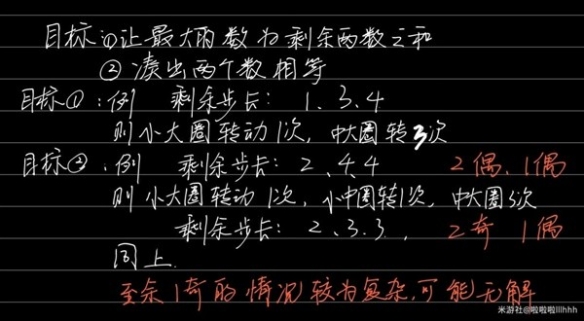 目标:①让最大两数为剩余两数之和
② 凑出两个数相等
目标①:例 剩余步长: 1、3、4
则小大圈转动1次, 中大圈转3次
目标②:例 剩余步长: 2、4、4 2偶、1偶
则小大圈转动1次, 小中圈转1次, 中大圈3次
剩余步长: 2、3、3、 2奇 1偶
同上.
至余1奇的情况较为复杂,可能无解
米游社@啦啦啦lllhhh